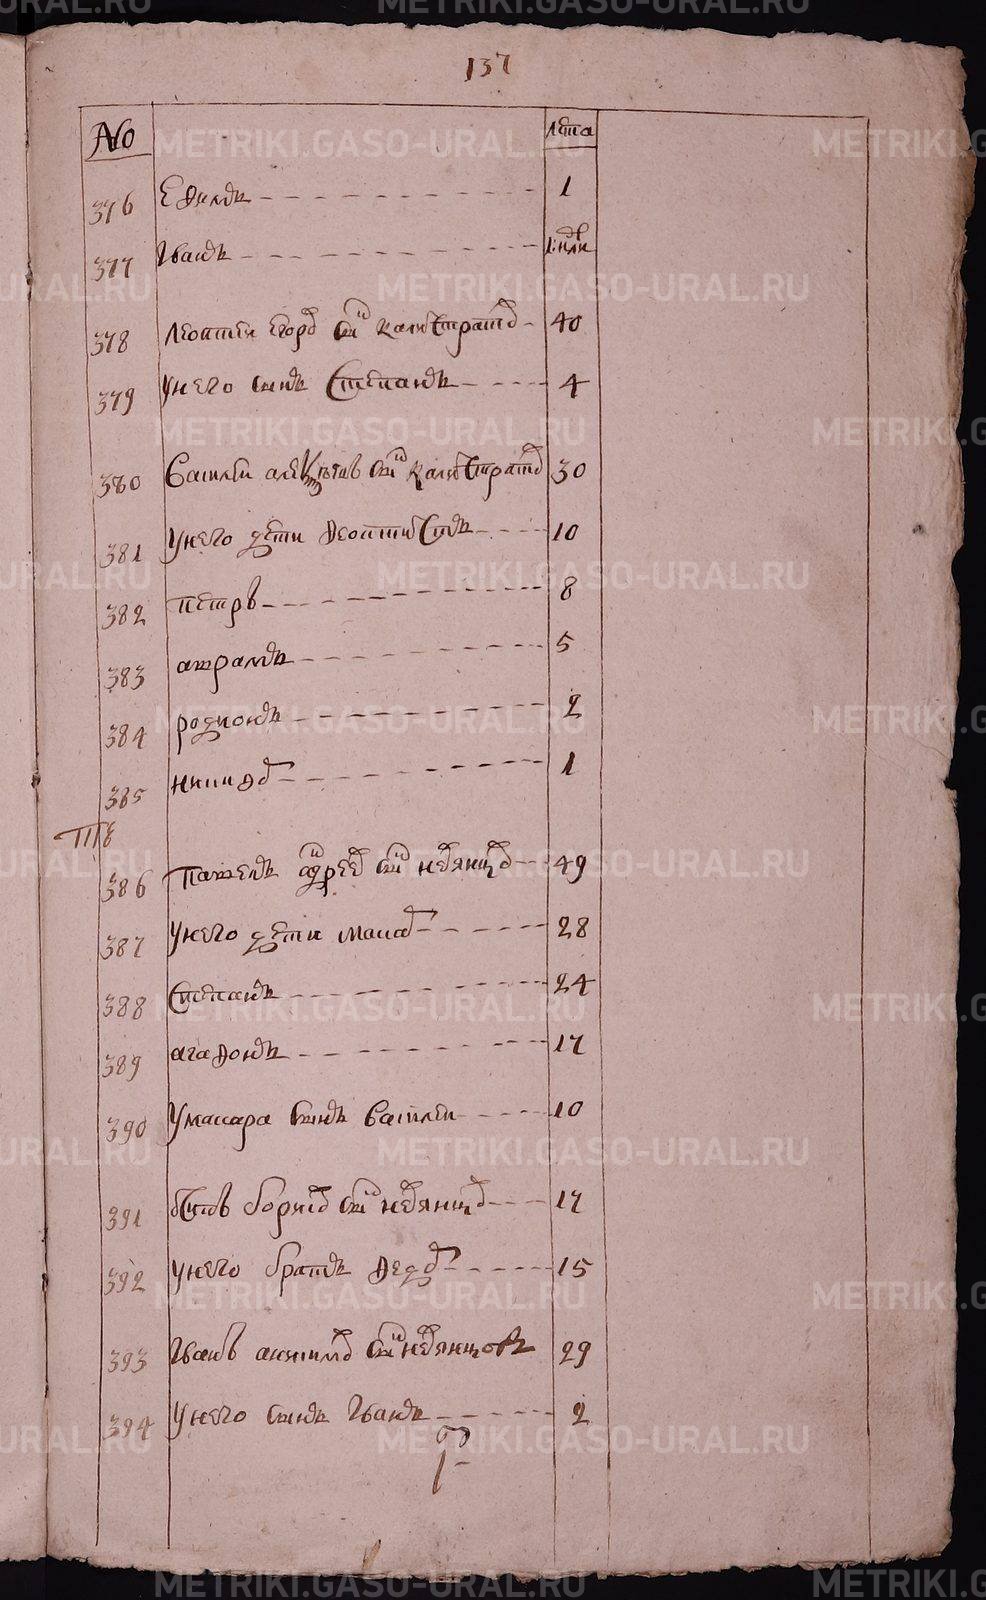 137
№ лета
376 Ефимъ 1
377 Иванъ
378 Леонтей Егоров сын Калистратов 40
379 У него сынъ Степанъ 4
380 Василей сын Калистратов 30
381 У него дети Феоктистъ 10
382 Петръ 8
383 Аврамъ 5
384 Родионъ 2
385 1
386 Павелъ Андреев сын Невянцов 49
387 У него дети Макар 28
388 Степанъ 24
389 Агафонъ 17
390 У Макара сынъ Василей 10
391 Борисов сын Невянцов 17
392 У него братъ Федор 15
393 Иванъ сын Невянцовъ 29
394 У него сынъ Иванъ 2
METRIKI.GASO-URAL.RU